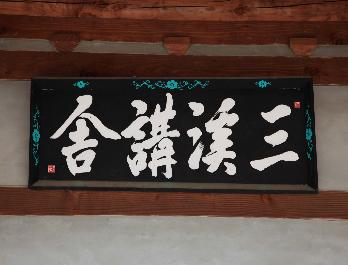 三溪講舍